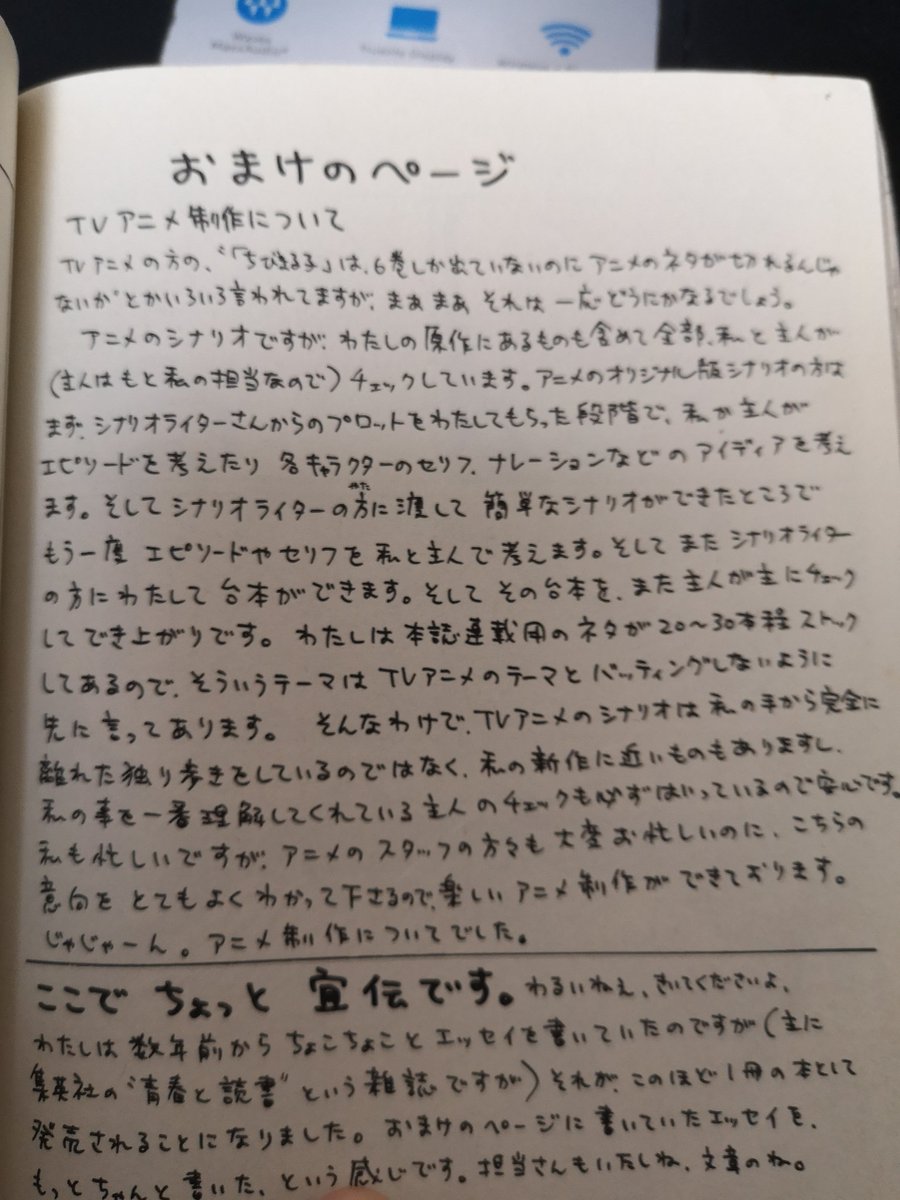 おまけのページ
TVアニメ制作について
TVアニメの方の、“「ちびまる子」は、6巻しか出ていないのにアニメのネタが切れるんじゃ
ないか”とかいろいろ言われてますが、まぁまぁそれは一応どうにかなるでしょう。
アニメのシナリオですが、わたしの原作にあるものも含めて全部、私と主人が
(主人はもと私の担当なので)チェックしています。アニメのオリジナル版シナリオの方は
まず、シナリオライターさんからのプロットをわたしてもらった段階で、私か主人が
エピソードを考えたり各キャラクターのセリフ、ナレーションなどのアイディアを考え
ます。そしてシナリオライターの方に渡して簡単なシナリオができたところで
もう一度エピソードやセリフを私と主人で考えます。そしてまたシナリオライター
の方にわたして台本ができます。そしてその台本を、また主人が主にチェック
してでき上がりです。わたしは本誌連載用のネタが20〜30本程ストック
してあるので、そういうテーマはTVアニメのテーマとバッティングしないように
先に言ってあります。そんなわけで、TVアニメのシナリオは私の手から完全に
離れた独り歩きをしているのではなく、私の新作に近いものもありますし、
私の事を一番理解してくれている主人のチェックも必ずはいっているので安心です。
私も忙しいですが、アニメのスタッフの方々も大変お忙しいのに、こちらの
意向をとてもよくわかって下さるので、楽しいアニメ制作ができております。
じゃじゃーん。アニメ制作についてでした。
ここでちょっと宣伝です。わるいねえ、きいてくださいよ、
わたしは数年前からちょこちょことエッセイを書いていたのですが(主に
集英社の“青春と読書”という雑誌ですが)それが、このほど1冊の本として
発売されることになりました。おまけのページに書いていたエッセイを、
もっとちゃんと書いた、という感じです。担当さんもいたしね、文章のね。